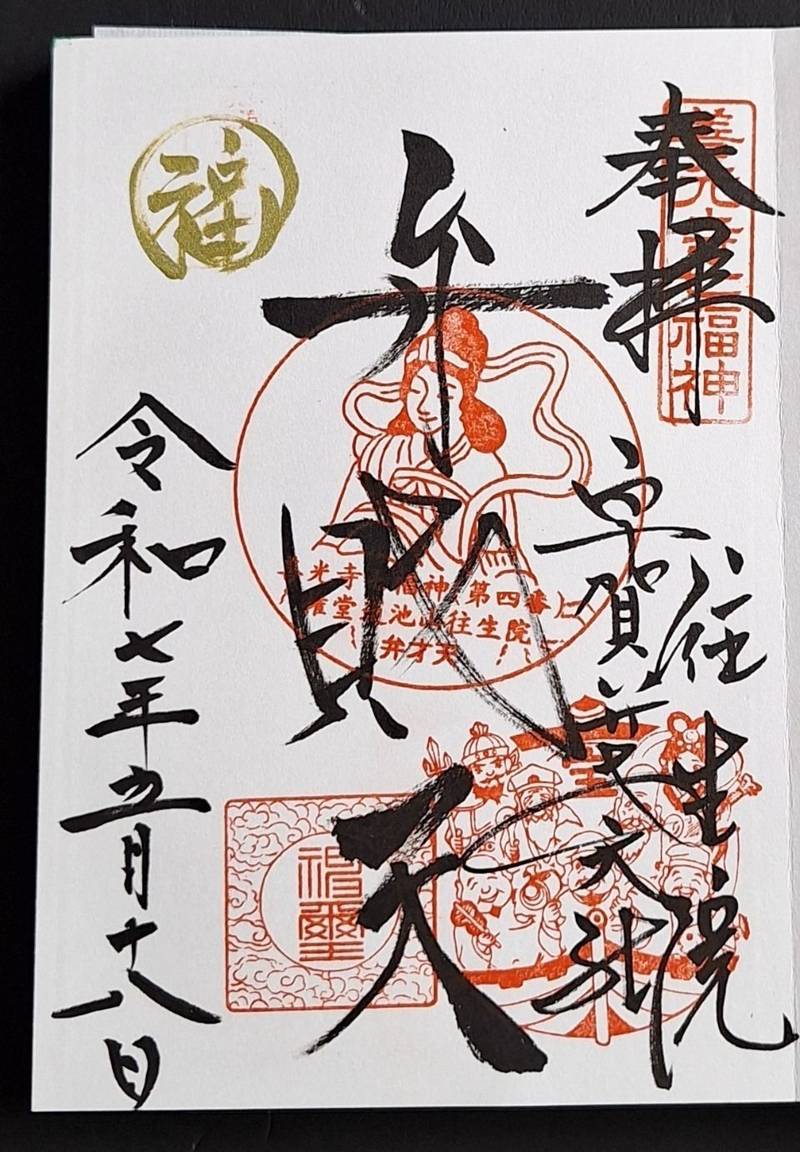 奉拝
善光寺七福神
往生院
弁財天
善光寺七福神第四番
権堂蓮池山往生院
弁才天
福
令和七年五月十八日